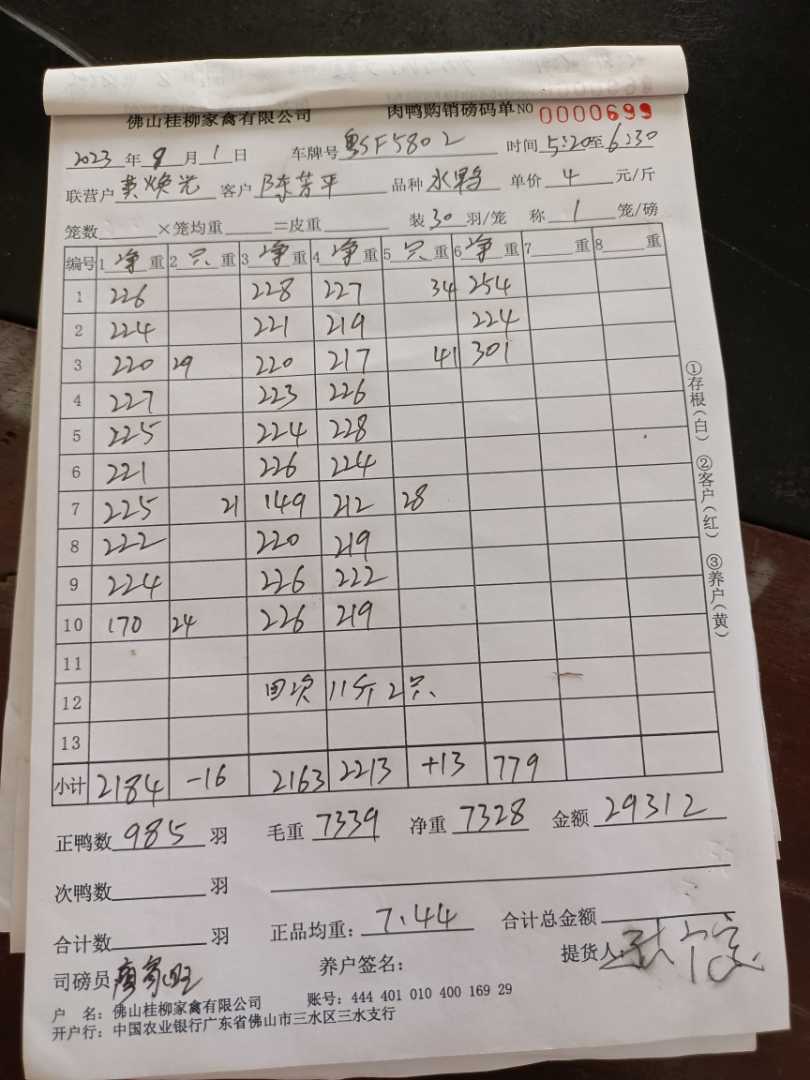 佛山桂柳家禽有限公司 肉鸭购销磅码单 NO 0000699
2023 年 9 月 1 日 车牌号 粤SF5802 时间 5:20至6:30
联营户 黄焕光 客户 陈芳平 品种 水鸭 单价 4 元/斤
笼数 ×笼均重 =皮重 装 30 羽/笼 称 1 笼/磅
编号 1 净 重 2 只 重 3 净 重 4 净 重 5 只 重 6 净 重 7 重 8 重
1 226 228 227 34 254
2 224 221 219 224
3 220 29 220 217 41 301
4 227 223 226
5 225 224 228
6 221 226 224
7 225 21 149 212 28
8 222 220 219
9 224 226 222
10 170 24 226 219
11
12 回次 11斤 2只
13
小计 2184 -16 2163 2213 +13 779
正鸭数 985 羽 毛重 7339 净重 7328 金额 29312
次鸭数 羽
合计数 羽 正品均重: 7.44 合计总金额
司磅员 养户签名: 提货人:
户 名: 佛山桂柳家禽有限公司 账号: 444 401 010 400 169 29
开户行: 中国农业银行广东省佛山市三水区三水支行
①存根(白) ②客户(红) ③养户(黄)